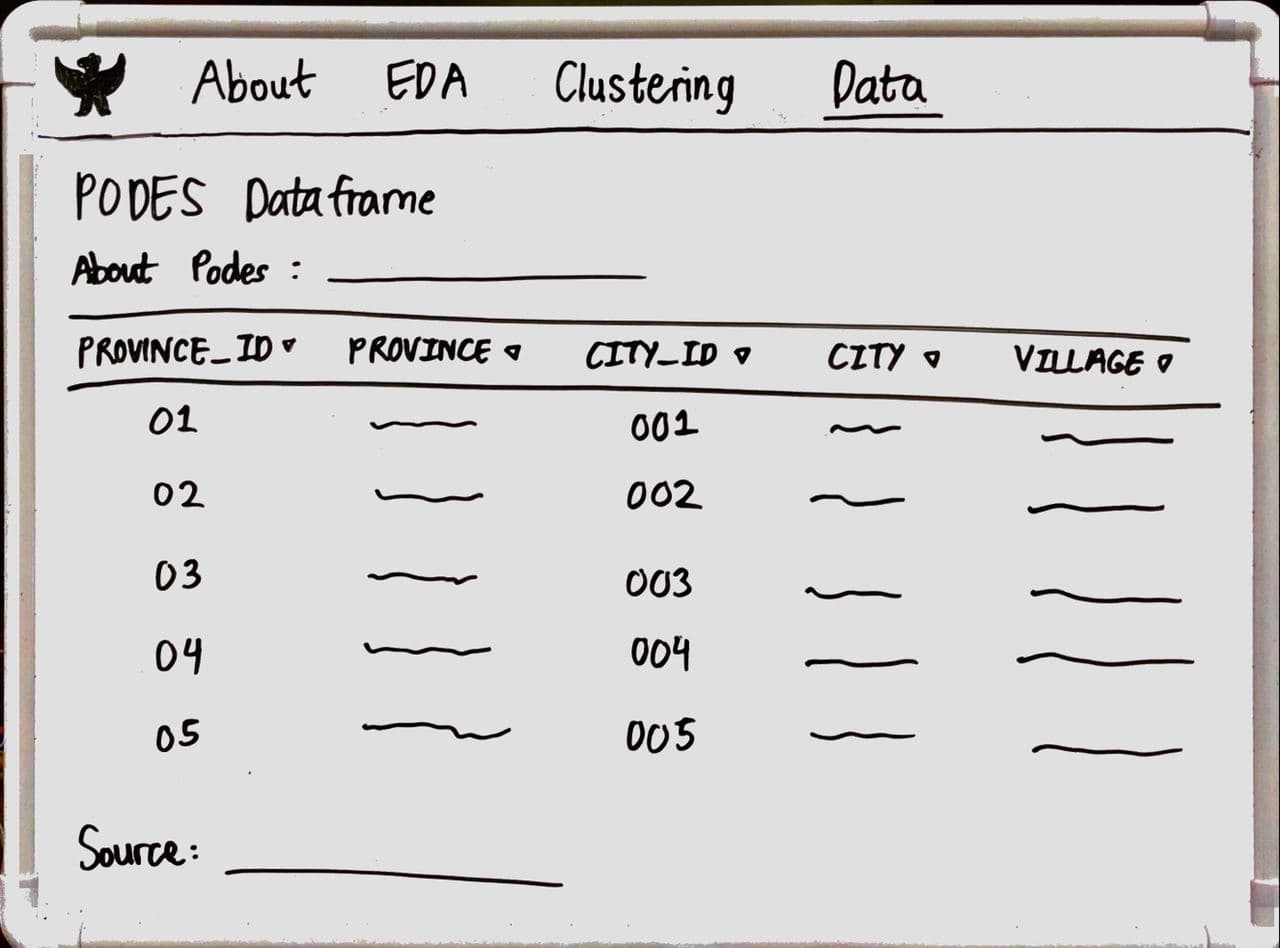 About EDA Clustering Data
PODES Dataframe
About Podes :
PROVINCE_ID PROVINCE CITY_ID CITY VILLAGE
01 001
02 002
03 003
04 004
05 005
Source: